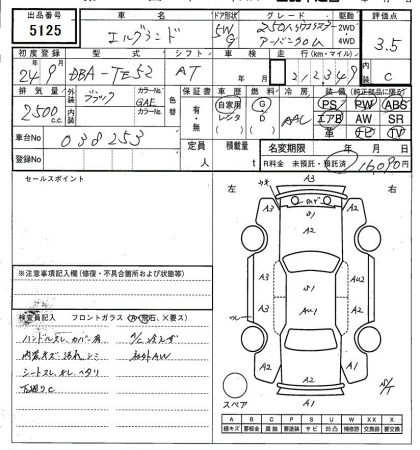 出品番号 車名 ドア形状 グレード 駆動 評価点
5125 エルグランド 5W G 250ハイウェイスター アーバンクロム 2WD 4WD 3.5
初度登録 型式 シフト 車検 走行(km・マイル) 内装
24 9 月 DBA-TE52 AT 年 月 212349 C
排気量 外装 ブラック カラーNo. GAE 色替 保証書 車歴 燃料 冷房 装備(純正部品に限る)
2500 c.c. 内装 カラーNo. 有・無 自家用 レンタ ( ) G D ( ) AAC PS PW ABS
エアB AW SR
革 TV
車台No 038253 定員 人 積載量 t 名変期限 年 月 日
登録No R料金 未預託・預託済 16090円
セールスポイント
左 右
※注意事項記入欄(修復・不具合箇所および状態等)
検査員記入 フロントガラス(A・飛石、×要ス)
ハンドルスレ、カバー有
内装キズ・汚れ、シミ 社外AW
シートスレ、キレ、ヘタリ
下廻りC
A3
A3 A2
A2
A3 A3
A2 Au1 Au1
A2
A2 A2
A1
スペア
A B C P S U W XX X
線キズ 要板金 腐食 要塗装 サビ 凹凸 補修跡 交換跡 要交換